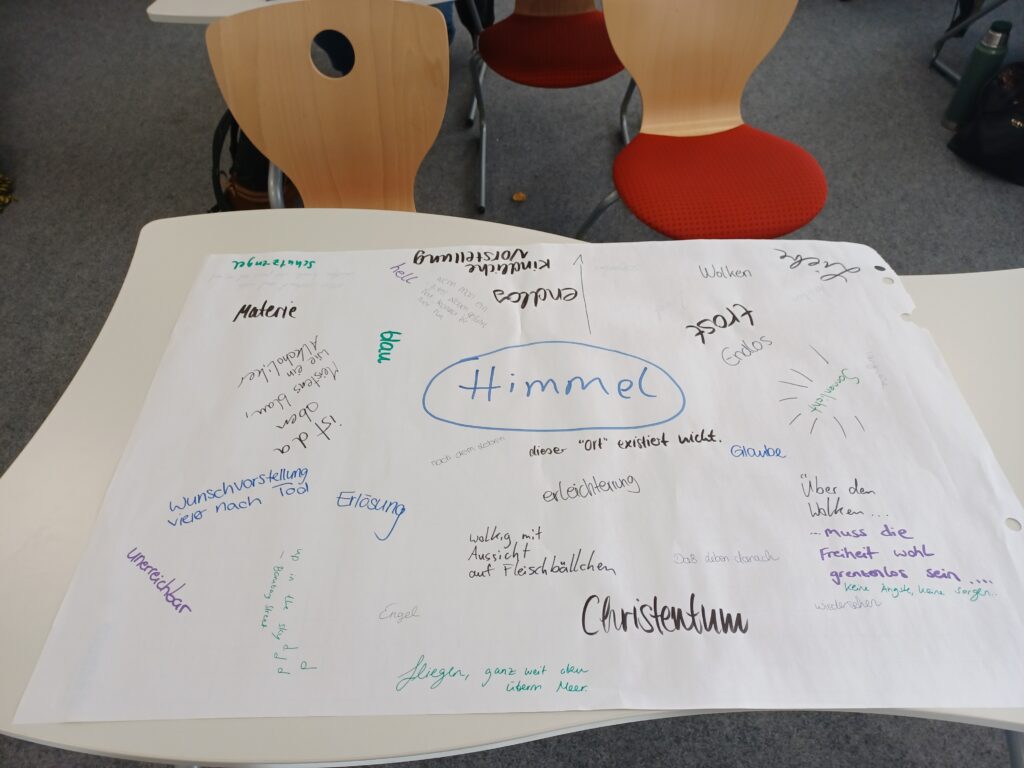 Schutzengel
hell
kindliche
Vorstellung
endlos
Wolken
Liebe
Materie
blau
trost
Endlos
Himmel
Sonnenlicht
ist da
oben
Meistens blau,
wie ein
Alkoholiker
nach dem sterben
dieser "Ort" existiert nicht.
Glaube
Wunschvorstellung
vieler nach Tod
Erlösung
erleichterung
Über den
Wolken...
...muss die
Freiheit wohl
grenzenlos sein....
keine Ängste, keine sorgen..
wiedersehen
wolkig mit
Aussicht
auf Fleischbällchen
Das leben danach
unerreichbar
up in the sky
Engel
Christentum
fliegen, ganz weit oben
überm Meer.